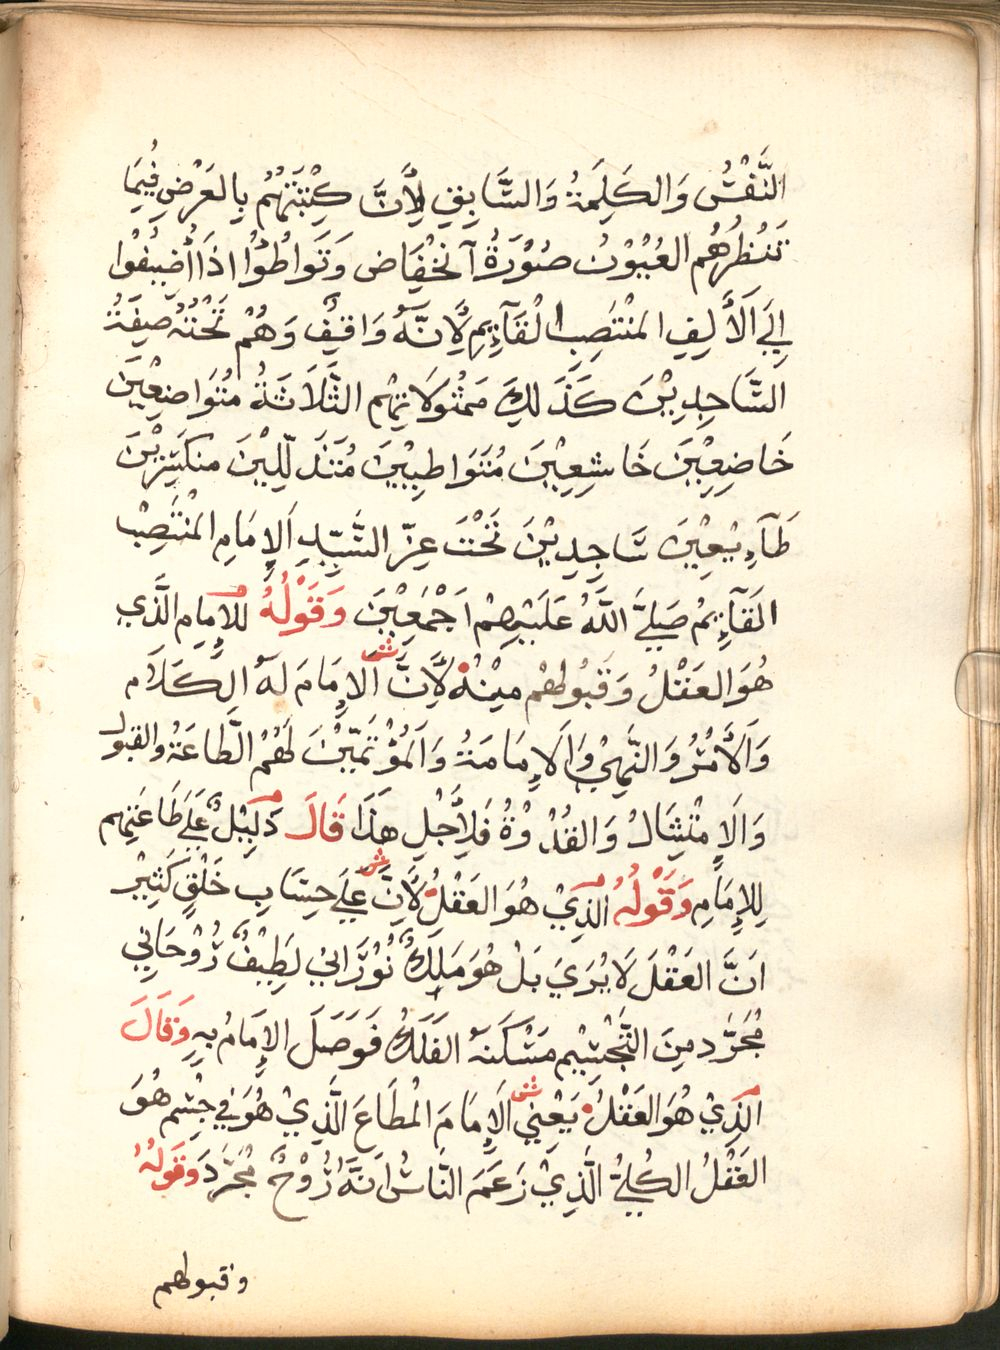 النَّفْسُ وَالكَلِمَةُ وَالسَّابِقِ لِأَنَّ كِتْبَتَهُمْ بِالعَرْضِ فِيمَا
تَنْظُرُهُم العُيُوْنُ صُوْرَةُ آنخْفِاض وَتَواطُؤا اذَا أُضِيفُوا
إِلَي اَلأَلِفِ المُنْتَصِبِ الْقَآئِمِ لِأَنَّهُ وَاقِفٌ وَهُمْ تَحْتَهُ صِفَةُ
السَّاجِدِيْنَ كَذَلِكَ مَمْثُولَاتِهُم الثَّلَاثَةُ مُتَوَاضِعِيْنَ
خَاضِعِيْنَ خَاشِعِيْنَ مُتَوَاطِيِيْنَ مُتَذَلِّلِيْنَ مُنكَسِرِيْنَ
طَآءِيْعِيْنَ سَاجِدِيْنَ تَحْتَ عِزِّ السَّيِّدِ اَلإِمَامِ المُنْتَصِبْ
القَآئِمْ صَلَّي اللَّهُ عَلَيْهِمْ اَجْمَعِيْنَ وَقَوْلُهُ للإِمِام الَّذي
هُوَ العَقْلُ وَقَبُولهُم مِنْهُ ش لِأَنَّ الإِمَامَ لَهُ الكَلَام
وَاَلأَمْرُ وَالنَّهيْ وَاَلإِمَامَةُ وَاَلمُؤْتَمِّيْنَ لَهُمُ الطَّاعَةُ والقبول
وَاَلامْتِثَالُ وَالقُدْوَةُ فَلِأَجْلِ هَذَا قَالَ دَلِيْلٌ عَلَي طَاعَتِهم
لِلإِمَامِ وَقَوْلُهُ الَّذِيْ هُوَ العَقْلُ ش لِأَنَّ عَلَي حِسَابِ خَلْقٍ كَثِيْرْ
اَنَّ العَقْلَ لَا يُرَيَ بَلْ هُوَ مَلَكٌ نُوْرَانِيْ لَطِيْفٌ رُوْحَانِي
مُجَرَّد مِنَ التَّجْسِيْمِ مَسْكَنَهُ الفَلَكُ فَوَصَلَ الإِمَامُ بِهِ وَقَالَ
الَّذِيْ هُوَ العَقْلُ ش يَعْنِي اَلإِمَامَ المُطَاعَ الَّذِيْ هُوَ في جِسْمِ هُوَ
العَقْلُ الكُلِيُّ الَّذِيْ زَعَمَ النَّاسُ اَنَّهُ رُوْحٌ مُجَرَّدَ وَقَولهُ
وقبولهم